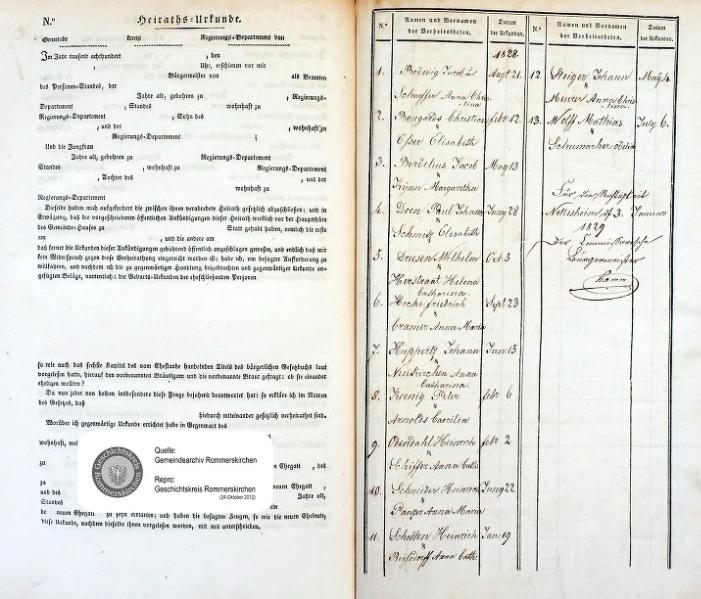 N.º Heiraths-Urkunde.
Gemeinde Kreis Regierungs-Departement von
Im Jahr tausend achthundert , den
, Uhr, erschienen vor mir
Bürgermeister von als Beamten
des Personen-Standes, der
Jahre alt, gebohren zu , Regierungs-
Departement , Standes wohnhaft zu
Regierungs-Departement , Sohn des
, und der wohnhaft zu
Regierungs-Departement ;
Und die Jungfrau
Jahre alt, gebohren zu Regierungs-Departement
Standes , wohnhaft zu Regierungs-Departement
, Tochter des , und der
wohnhaft zu
Regierungs-Departement
Dieselbe haben mich aufgefordert die zwischen ihnen verabredete Heirath gesetzlich abzuschließen; und in
Erwägung, daß die vorgeschriebenen öffentlichen Ankündigungen dieser Heirath wirklich vor der Hauptthüre
des Gemeinde-Hauses zu Statt gehabt haben, nemlich die erste
am , und die andere am
daß ferner die Urkunden dieser Ankündigungen gehörend öffentlich angeschlagen gewesen, und endlich daß mir
kein Widerspruch gegen diese Verheirathung eingereicht worden ist; habe ich, um besagter Aufforderung zu
willfahren, und nachdem ich die zu gegenwärtiger Handlung beigebrachten und gegenwärtiger Urkunde an-
gefügten Beläge, namentlich: die Geburts-Urkunden der eheschließenden Personen
so wie auch das sechste Kapitel des vom Ehestande handelnden Titels des bürgerlichen Gesetzbuchs laut
vorgelesen hatte, hierauf den vorbenannten Bräutigam und die vorbenannte Braut gefragt: ob sie einander
ehelichen wollten?
Da nun jeder von beiden insbesondere diese Frage bejahend beantwortet hat: so erkläre ich im Namen
des Gesetzes, daß
hiedurch miteinander gesetzlich verheirathet sind.
Worüber ich gegenwärtige Urkunde errichtet habe in Gegenwart des
wohnhaft,
Quelle:
Gemeindearchiv Rommerskirchen
Repro:
Geschichtskreis Rommerskirchen
(24.Oktober 2012)
Geschichtskreis
Rommerskirchen
zu Ehegatt , des
zu neuen Ehegatt ,
und des Jahre alt,
Standes ein
de neuen Ehegatt zu seyn erklärten; und haben die besagten Zeugen, so wie die neuen Eheleute,
diese Urkunde, nachdem dieselbe ihnen vorgelesen worden, mit mir unterschrieben.
N.º Namen und Vornamen der Verheiratheten. Datum der Urkunden. N.º Namen und Vornamen der Verheiratheten. Datum der Urkunden.
1828
1. Bodewig Jacobus Augt 21.
Schaeffer Anna Chris
tina
2. Bongards Christian febr 12.
Esser Elisabeth
3. Jacob May 13
Margaretha
4. Doen Paul Johann Juny 28
Schmitz Elisabeth
5. Driesen Wilhelm Oct 3
Herstraat Helena
Catharina
6. Hocke friedrich Sept 23
Cramer Anna Maria
7. Huppertz Johann Jan 15
Neukirchen Anna
Catharina
8. Koenig Peter febr 6
Arnolds Caecilia
9. Odendahl Heinrich febr 2
Schiffer Anna Cath:
10. Schneider Juny 22
Panzer Anna Maria
11. Schotten Heinrich Jan 19
Anna Cath:
12. Steiger Johann May 4.
Meurer Anna Chris
tina
13. Wolff Mathias July 6.
Schumacher Odilia
Für die Abschrift
Nettesheim d 3. Januar
1829
Der Commissarische
Bürgermeister